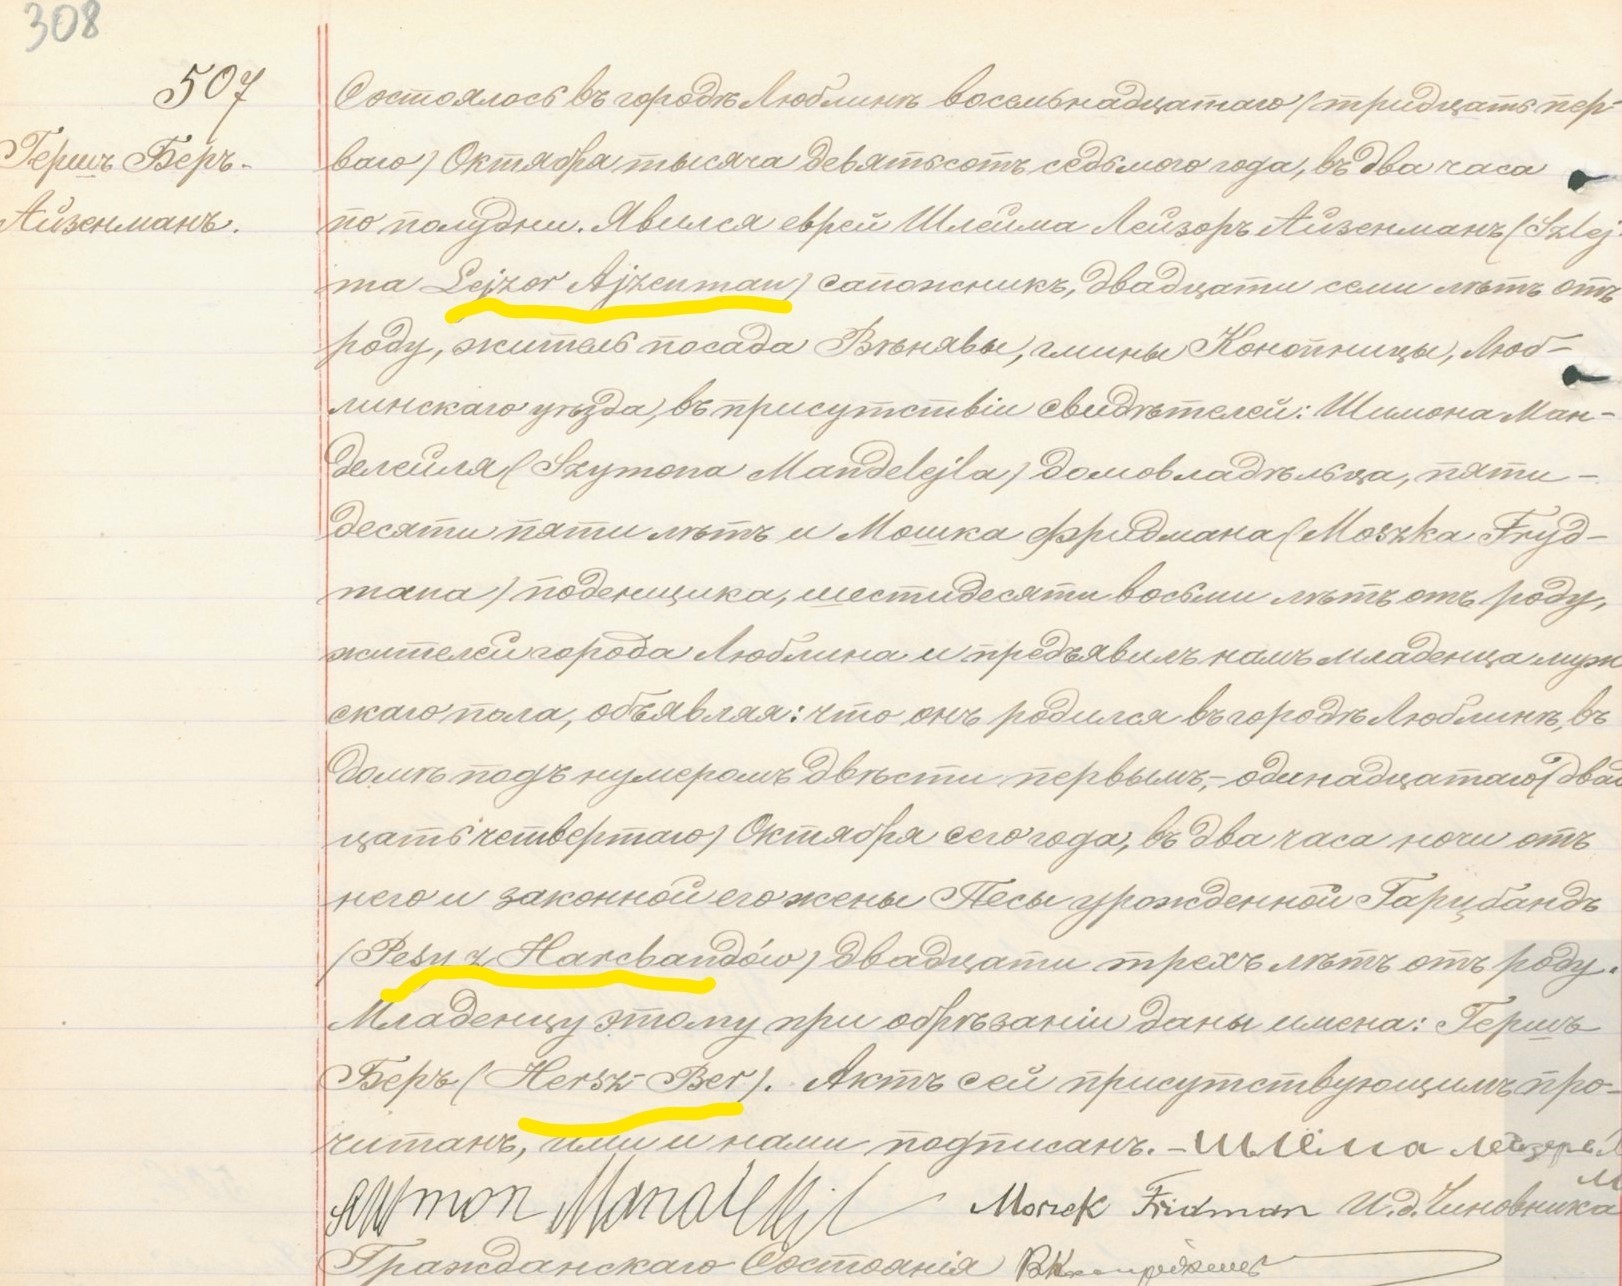 308
507
Гершъ Беръ-
Айзенманъ.
Состоялось въ городѣ Люблинѣ восемьнадцатаго (тридцать пер-
ваго) Октября тысяча девятьсотъ седьмого года, въ два часа
по полудни. Явился еврей Шлейма Лейзоръ Айзенманъ (Szlej-
ma Lejzor Ajzenman) сапожникъ, двадцати семи лѣтъ отъ
роду, житель посада Вѣнявы, гмины Конопницы, Люб-
линскаго уѣзда, въ присутствіи свидѣтелей: Шимона Ман-
делейля (Szymona Mandelejla) домовладѣльца, пяти-
десяти пяти лѣтъ и Мошка Фридмана (Moszka Fryd-
mana) поденщика, шестидесяти восьми лѣтъ отъ роду,
жителей города Люблина и предъявилъ намъ младенца муж
скаго пола, объявляя: что онъ родился въ городѣ Люблинѣ, въ
домѣ подъ нумеромъ двѣсти первымъ,- одинадцатаго (двад
цать четвертаго) Октября сего года, въ два часа ночи отъ
него и законной его жены Песы урожденной Гарцбандъ
(Pesy z Harcbandów) двадцати трехъ лѣтъ отъ роду.
Младенцу этому при обрѣзаніи даны имена: Гершъ
Беръ (Hersz-Ber). Актъ сей присутствующимъ про-
читанъ, ими и нами подписанъ. - Шлёма
Mandelejl Morzek Fridman И.д. Чиновника
Гражданскаго Состоянія